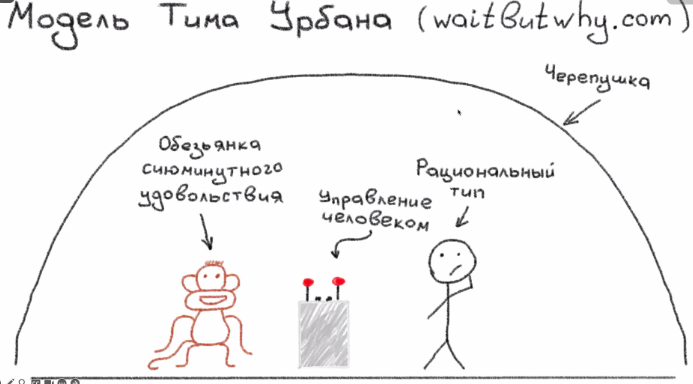 Модель Тима Урбана (waitbutwhy.com)
Черепушка
Обезьянка
сиюминутного
удовольствия
Управление
человеком
Рациональный
тип